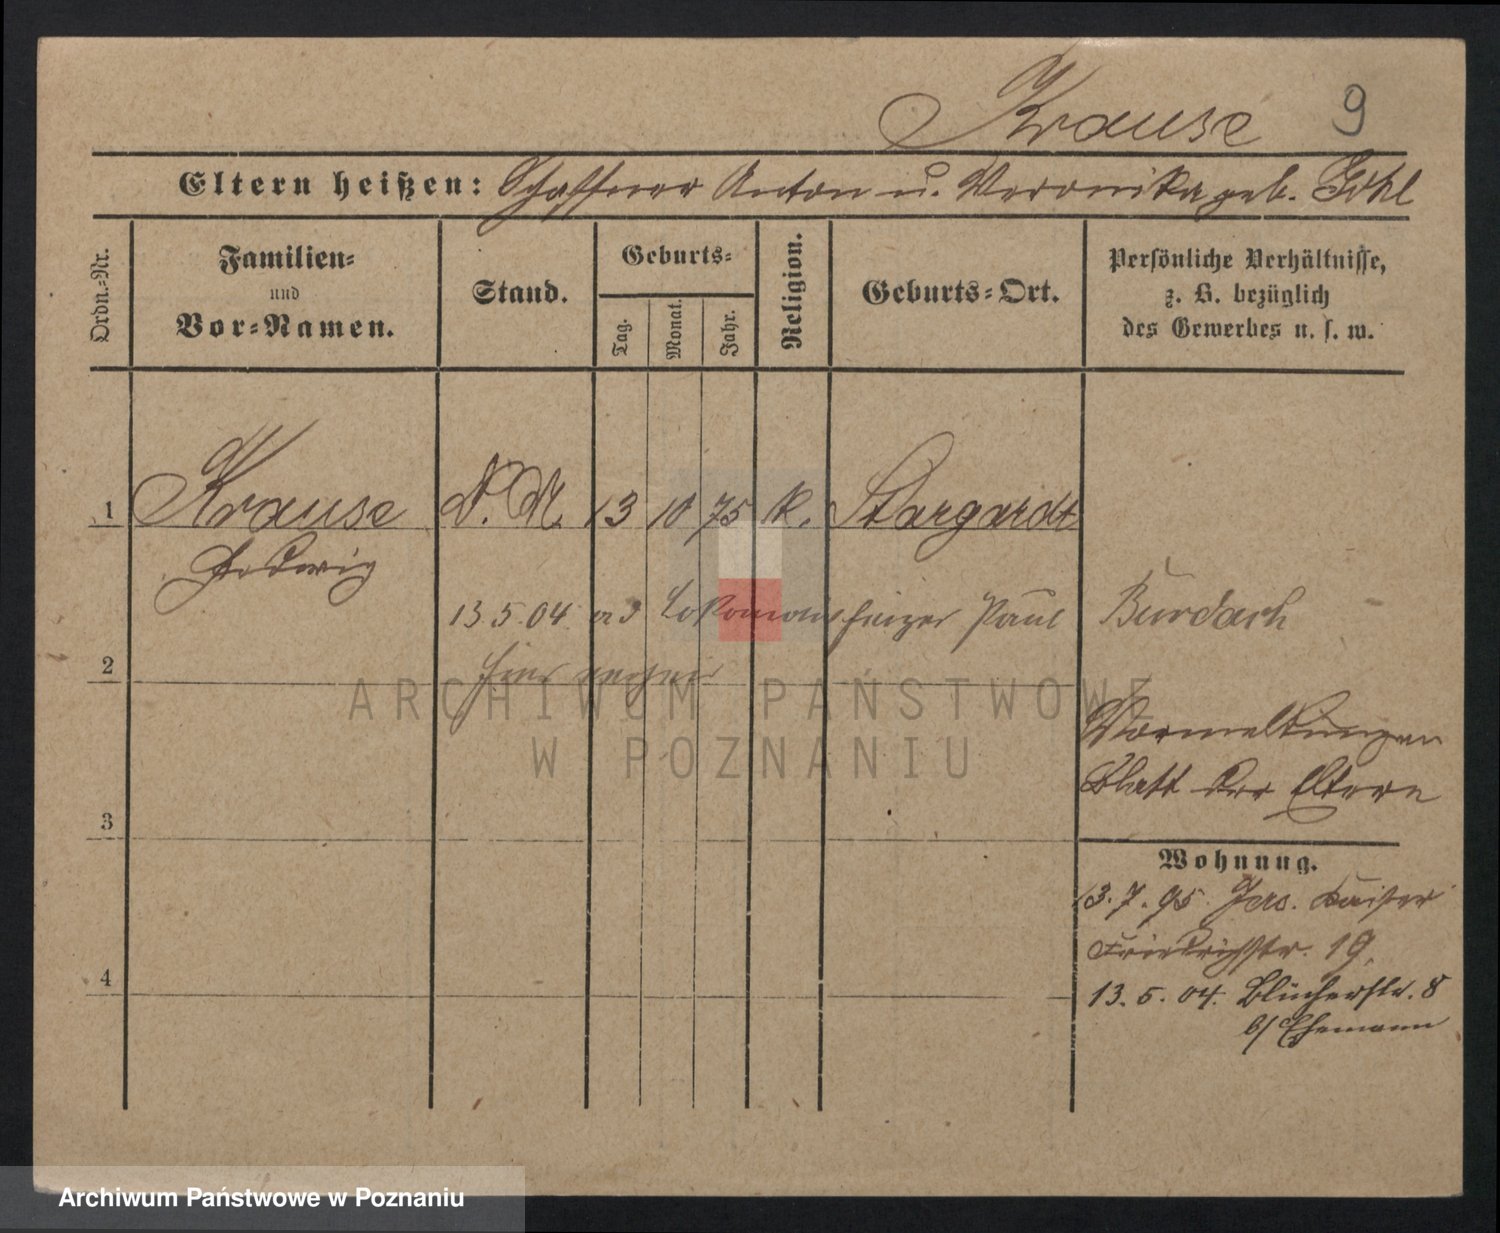 Krause 9
Eltern heißen: Schaffner Anton u. Veronika geb. Göhl
Ordn.-Nr.
Familien-
und
Vor-Namen.
Stand.
Geburts-
Tag.
Monat.
Jahr.
Religion.
Geburts-Ort.
Persönliche Verhältnisse,
z. B. bezüglich
des Gewerbes u. s. w.
1 Krause D. M. 13 10 75 K. Stargardt
Hedwig
13.5.04 Lokomotivheizer Paul Burdach
2 hier
Vormeldungen
Blatt der Eltern
3
Wohnung.
3.7.95. Jers. Kaiser
Friedrichstr. 19.
4
13.5.04. Blücherstr. 8
b/ Ehemann
ARCHIWUM PAŃSTWOWE
W POZNANIU
Archiwum Państwowe w Poznaniu